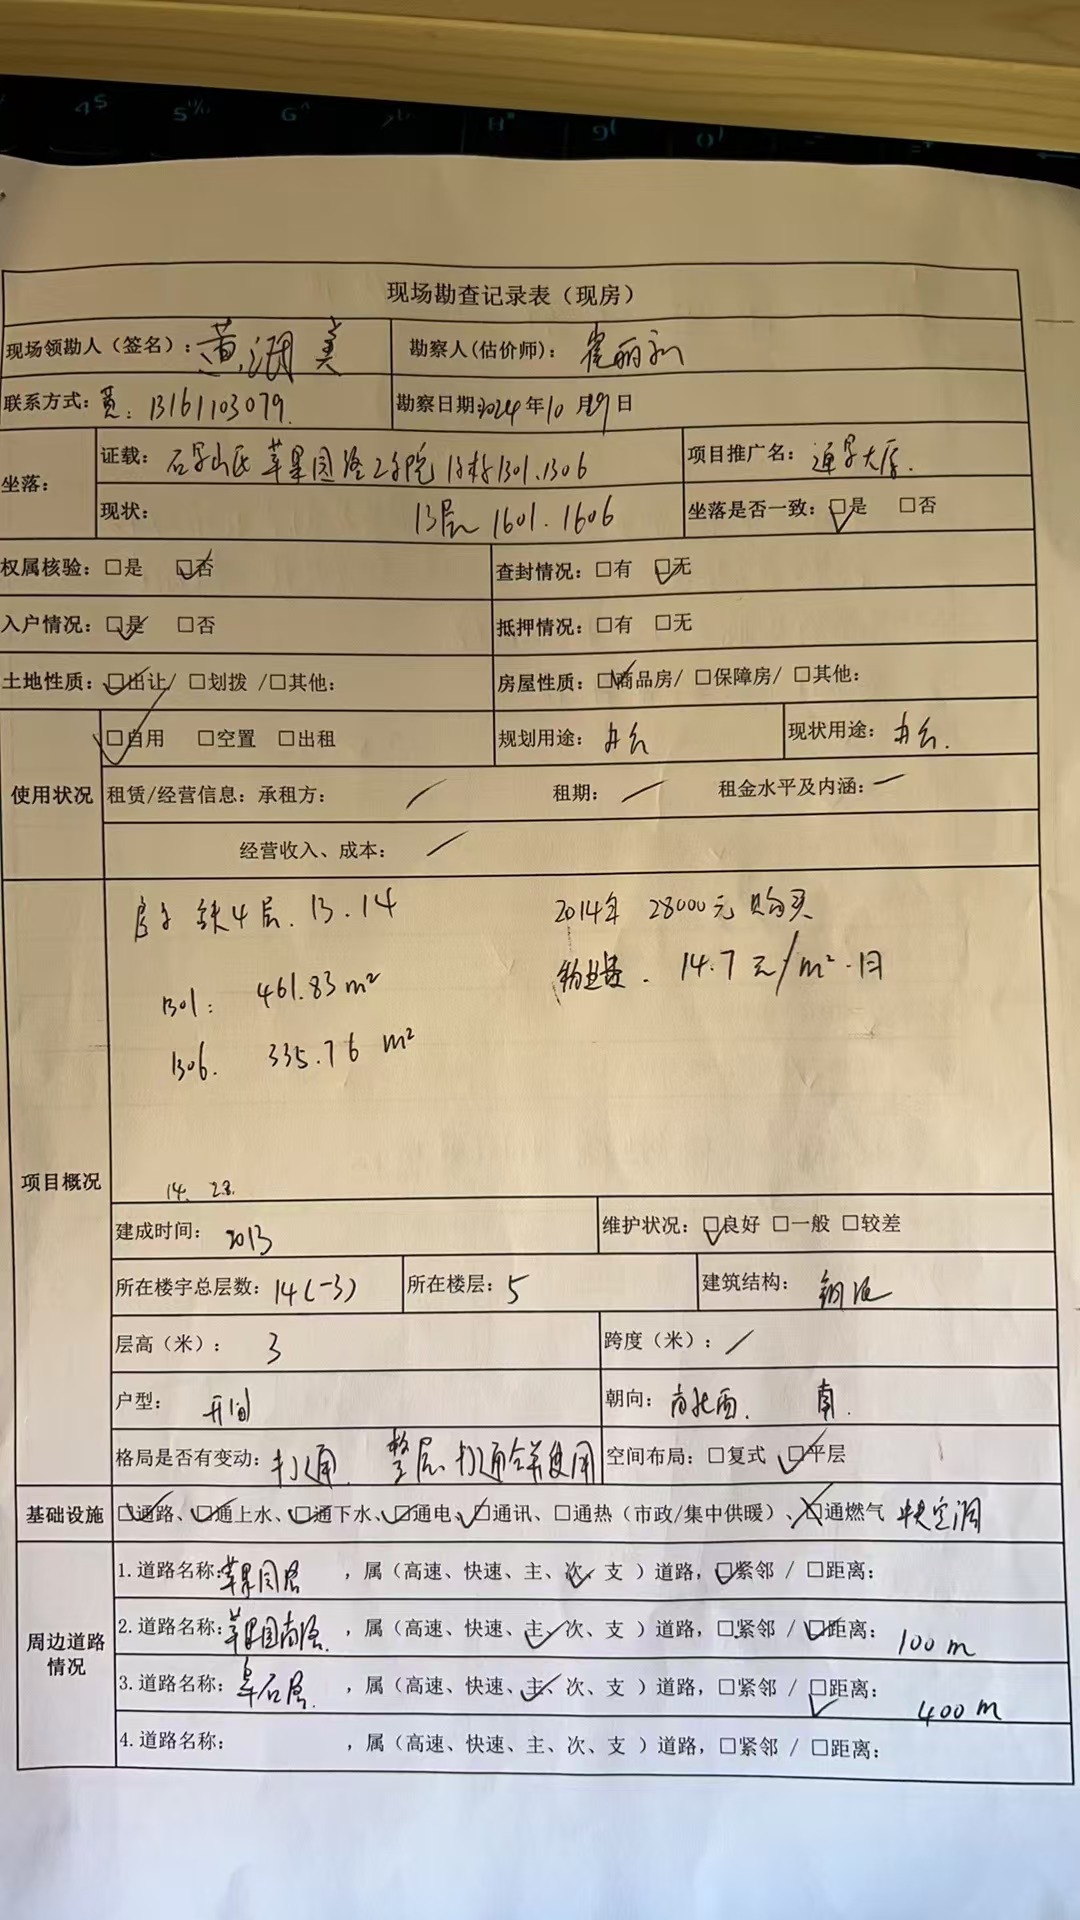 现场勘查记录表（现房）
现场领勘人（签名）：黄润美 勘察人(估价师)：崔丽
联系方式：黄：13161103079 勘察日期：2024年10月29日
坐落：
证载：石景山区苹果园路2号院 1301、1306
项目推广名：通景大厦.
现状：13层 1601. 1606
坐落是否一致：☑是 □否
权属核验：□是 ☑否 查封情况：□有 ☑无
入户情况：☑是 □否 抵押情况：□有 □无
土地性质：☑出让/ □划拨 /□其他： 房屋性质：☑商品房/ □保障房/ □其他：
使用状况
☑自用 □空置 □出租 规划用途：办公 现状用途：办公.
租赁/经营信息：承租方： / 租期： / 租金水平及内涵：/
经营收入、成本： /
项目概况
房子 缺4层. 13. 14 2014年 28000元 购买
1301： 461.83m² 物业费. 14.7元/m²·日
1306. 335.76 m²
14. 23.
建成时间：2013 维护状况：☑良好 □一般 □较差
所在楼宇总层数：14(-3) 所在楼层：5 建筑结构：钢混
层高（米）：3 跨度（米）：/
户型：开间 朝向：南北西. 南.
格局是否有变动：打通. 整层打通合并使用 空间布局：□复式 ☑平层
基础设施 ☑通路、☑通上水、☑通下水、☑通电、☑通讯、□通热（市政/集中供暖）、☒通燃气 中央空调
周边道路情况
1.道路名称：苹果园路 ，属（高速、快速、主、次✓、支 ）道路，☑紧邻 / □距离：
2.道路名称：苹果园南路. ，属（高速、快速、主✓、次、支 ）道路，□紧邻 / ☑距离：100m
3.道路名称：阜石路. ，属（高速、快速、主✓、次、支 ）道路，□紧邻 / ☑距离：400m
4.道路名称： ，属（高速、快速、主、次、支 ）道路，□紧邻 / □距离：